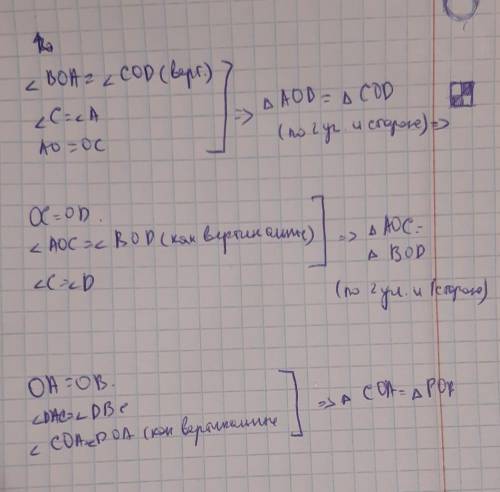 ∠ BOA = ∠ COD (верт.)
∠C = ∠A
AO = OC
=> △ AOD = △ COD
(по 2 уг. и стороне) =>
OC = OD.
∠AOC = ∠ BOD (как вертикальные)
∠C = ∠D
=> △ AOC =
△ BOD
(по 2 угл. и 1 стороне)
OA = OB.
∠DAC = ∠DBC
∠ COA = (как вертикальные
=> △ COA = △